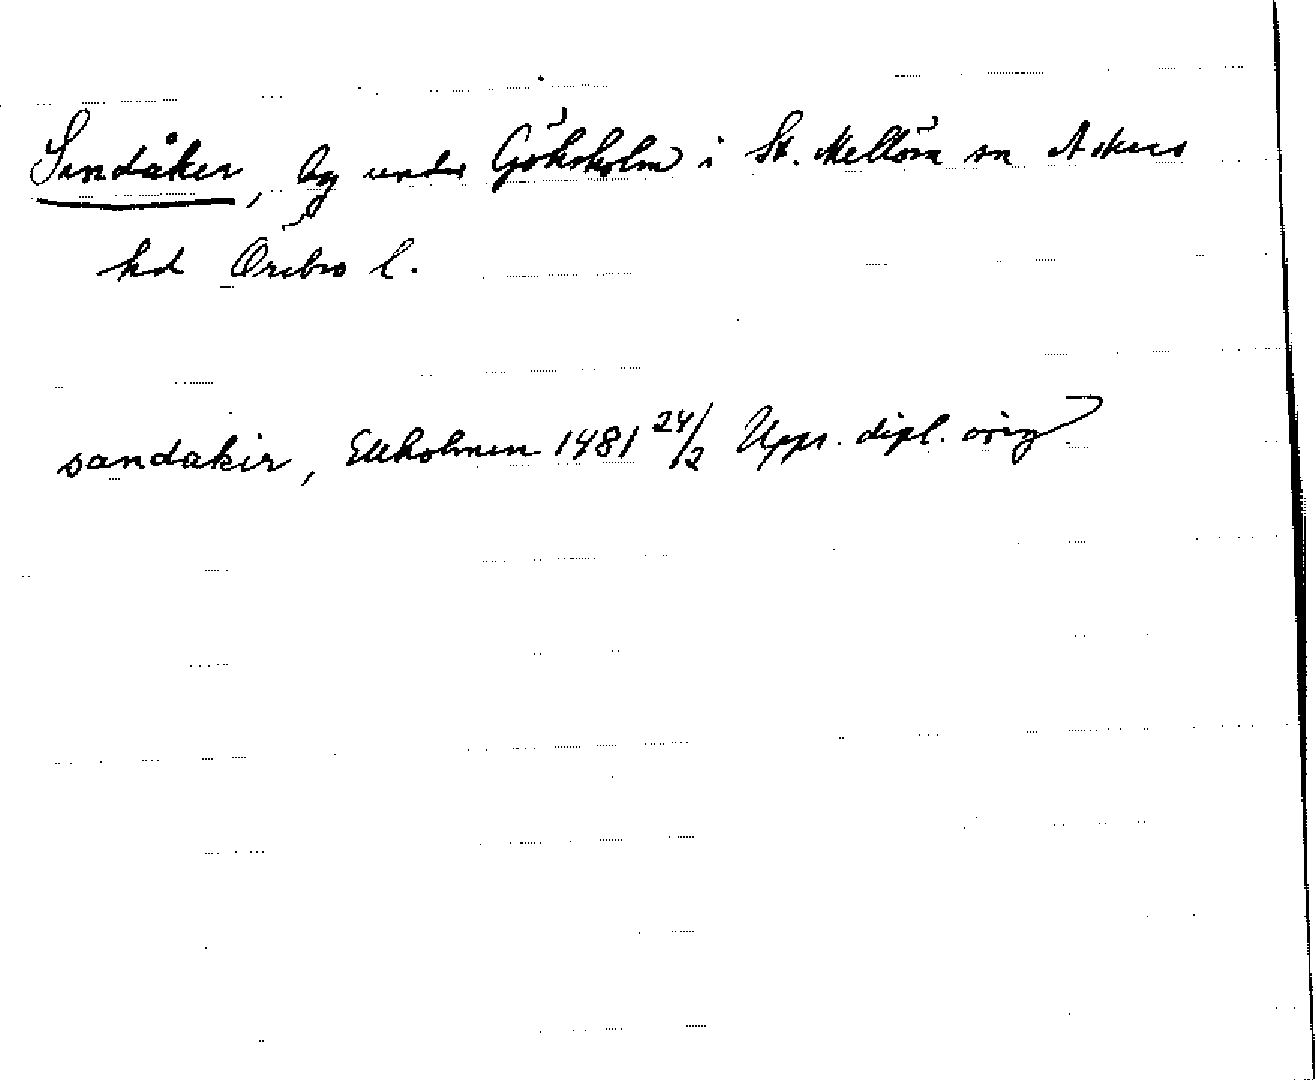 Sandåker, by under Göksholm i St. Mellösa sn Askers
hd Örebro l.
sandakir, Ekholmen 1481 24/2 Upps. dipl. orig